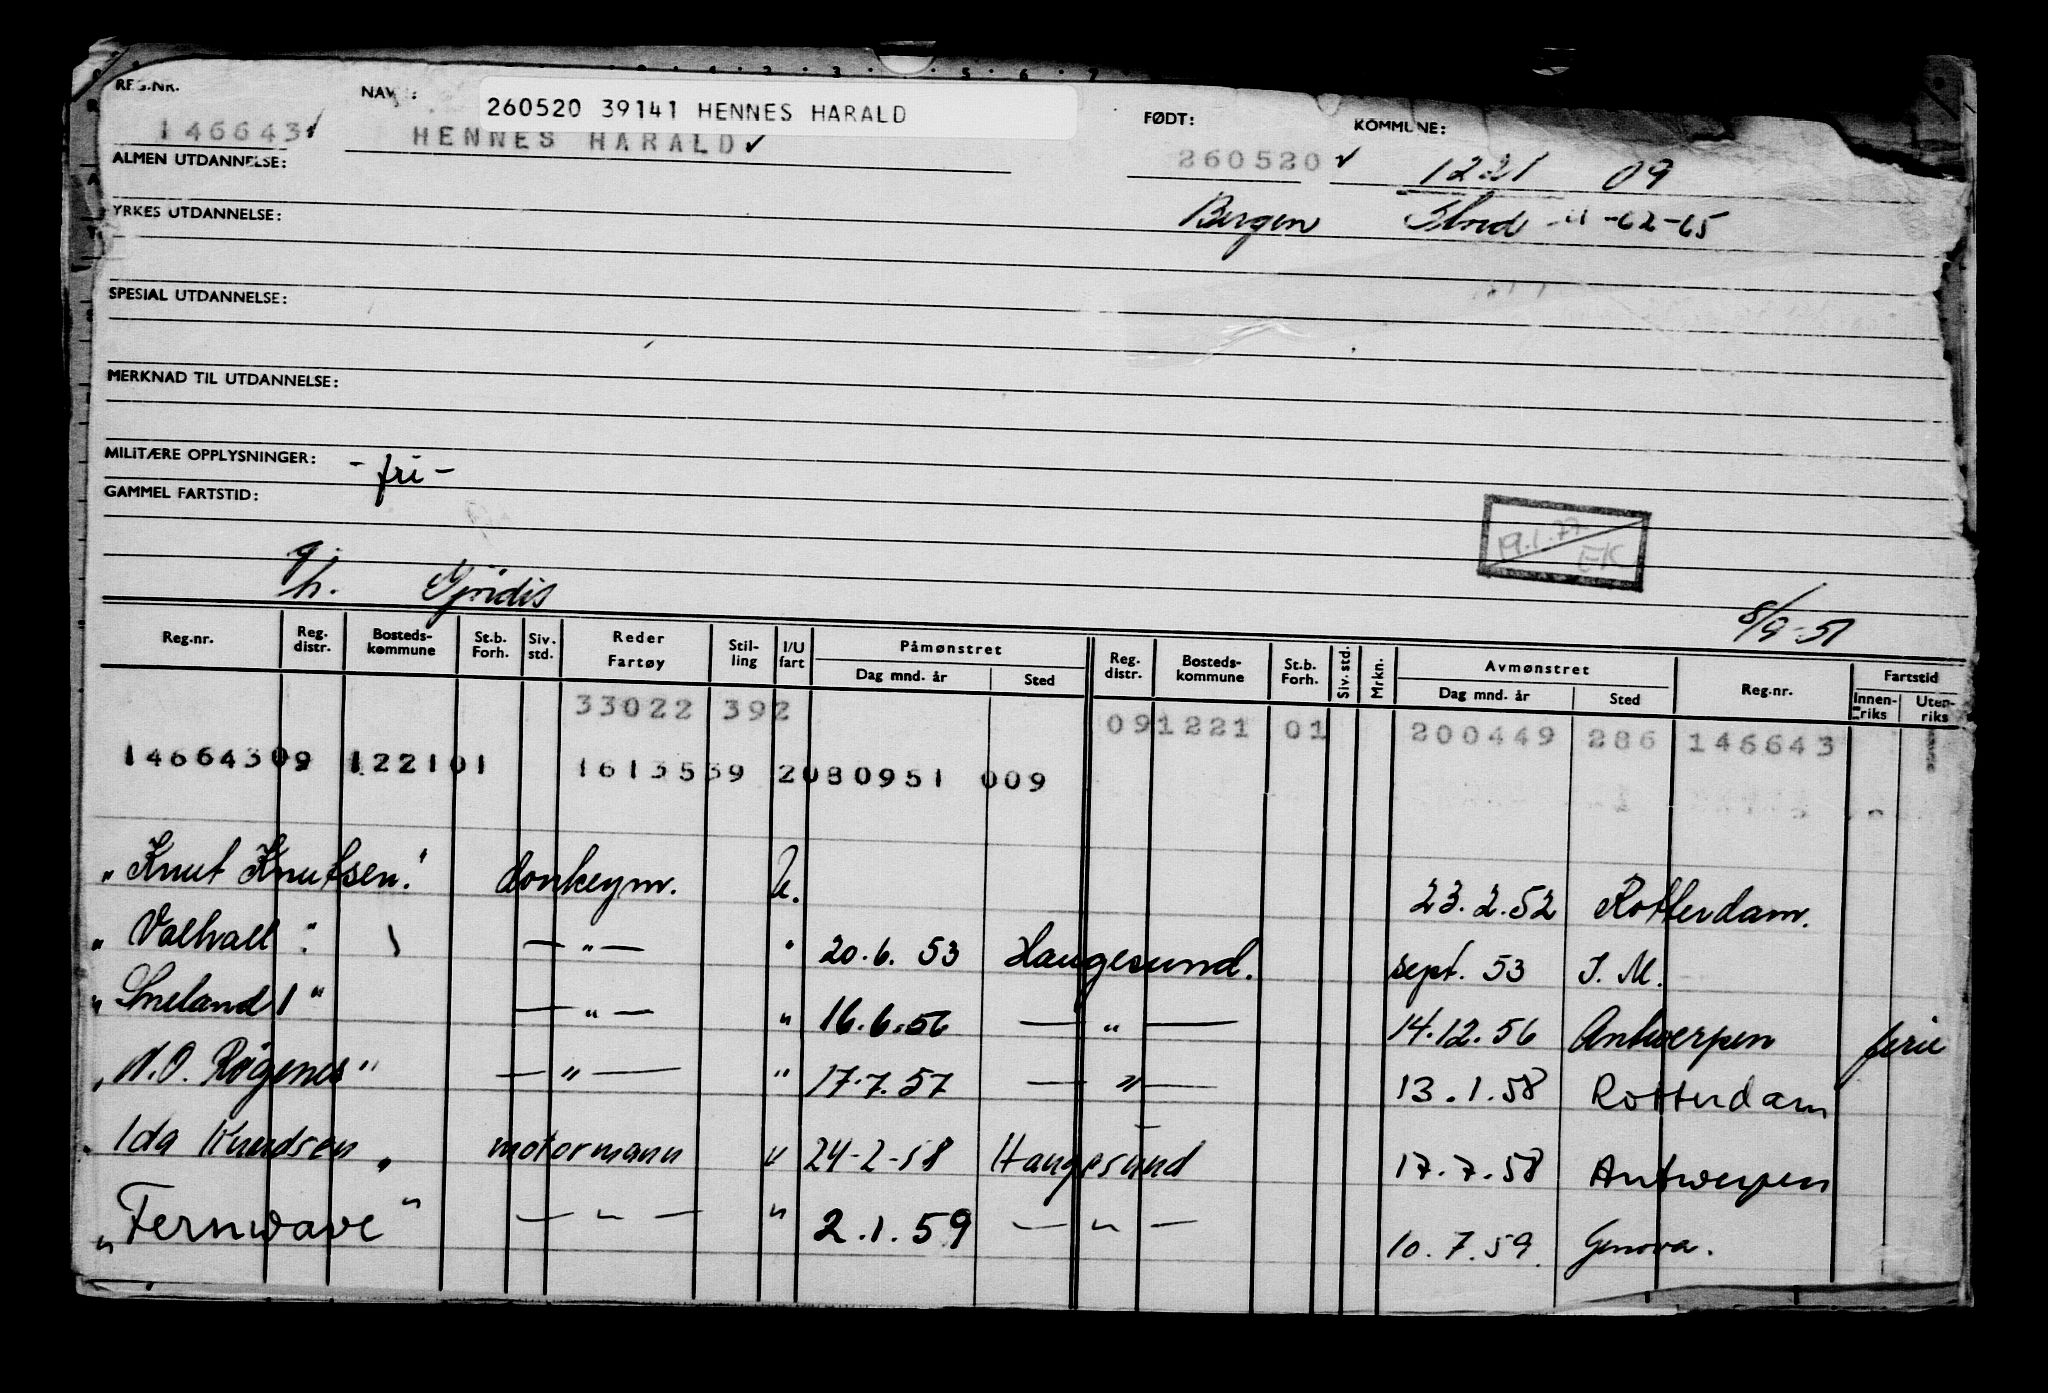 REG.NR. NAVN: 260520 39141 HENNES HARALD FØDT: KOMMUNE:
146643 ✓ HENNES HARALD ✓ 260520 ✓ 1221 09
ALMEN UTDANNELSE:
YRKES UTDANNELSE: Bergen Stord -62-65
SPESIAL UTDANNELSE:
MERKNAD TIL UTDANNELSE:
MILITÆRE OPPLYSNINGER: - fri -
GAMMEL FARTSTID:
19.1.77 EK
g. h. 8/9-51
Reg.nr. Reg. distr. Bosteds-kommune St.b. Forh. Siv. std. Reder Fartøy Stil-ling I/U fart Påmønstret Dag mnd. år Sted Reg. distr. Bosteds-kommune St.b. Forh. Siv. std. Mrkn. Avmønstret Dag mnd. år Sted Reg.nr. Fartstid Innen-riks Uten-riks
33022 392 091221 01 200449 286 146643
14664309 122101 1613539 2080951 009
"Knut Knutsen." donkeym. U. 23.2.52 Rotterdam.
"Valhall" — " — " 20.6.53 Haugesund. sept. 53 I.M.
"Sneland 1" — " — " 16.6.56 — " — 14.12.56 Antwerpen ferie
"N.O. Røgenes" — " — " 17.7.57 — " — 13.1.58 Rotterdam
"Ida Knudsen" motormann " 24-2-58 Haugesund 17.7.58 Antwerpen
"Fernwave" — " — " 2.1.59 — " — 10.7.59. Genova.